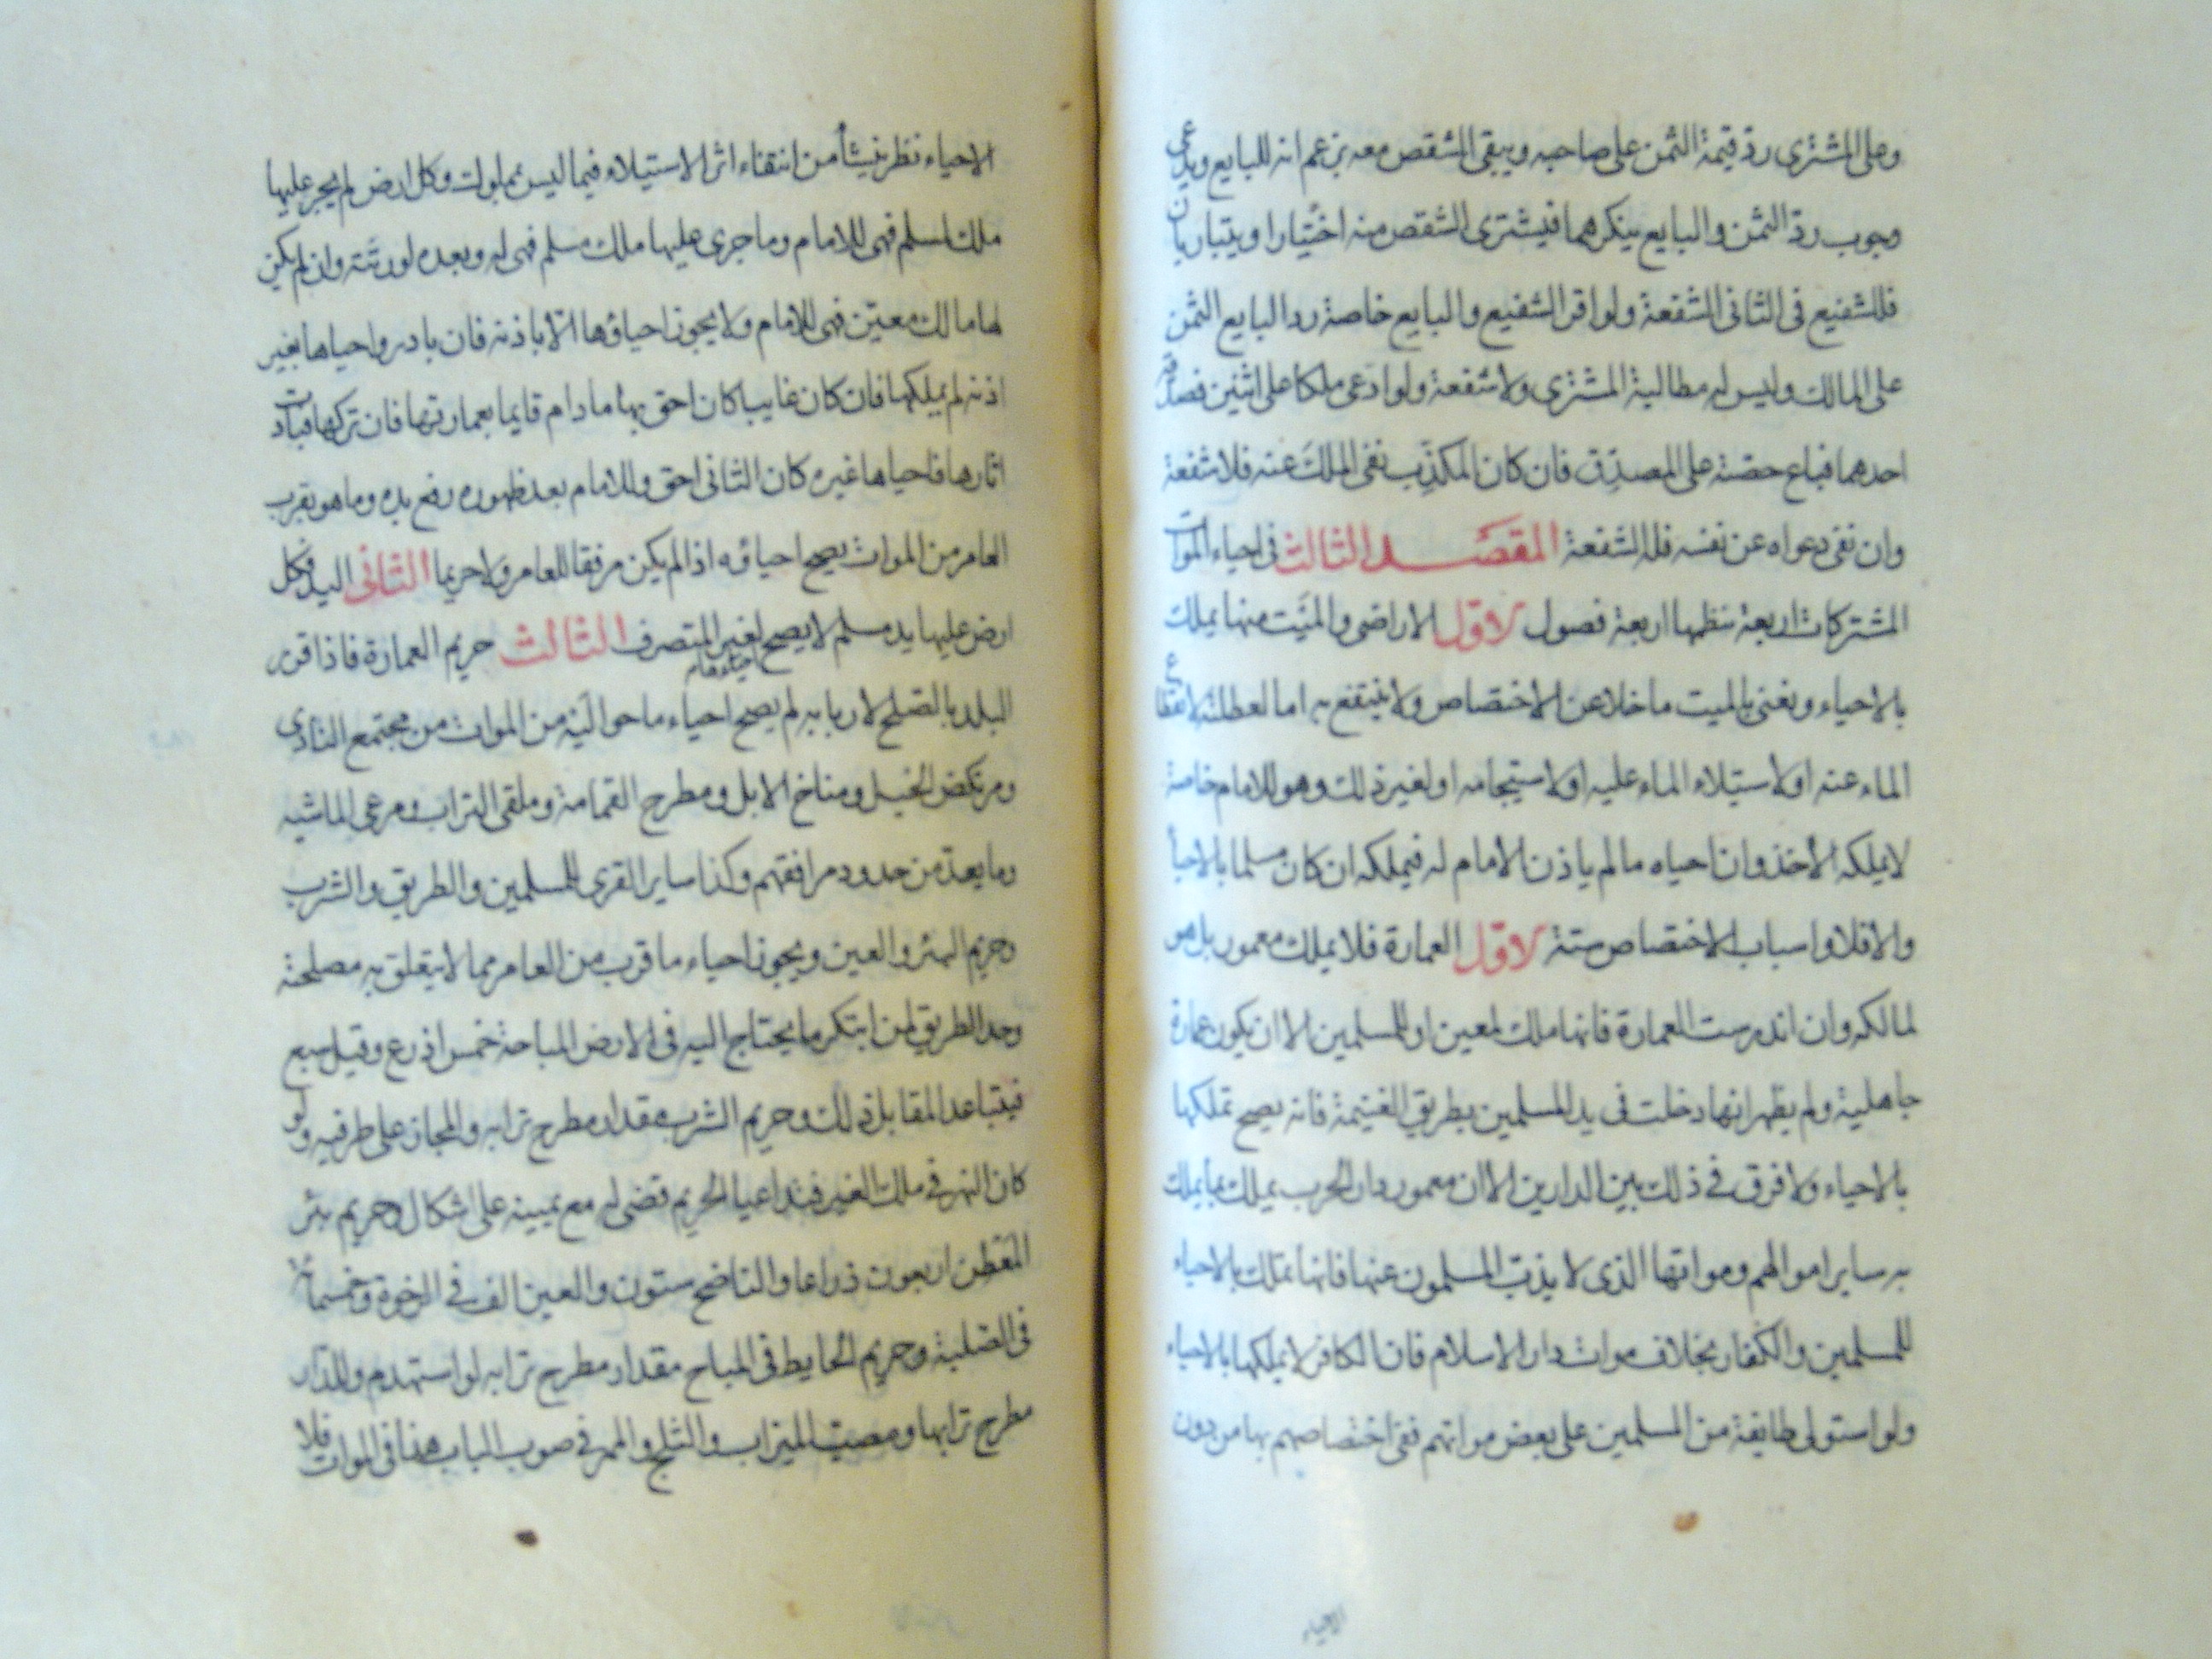 وعلى المشترى ردّ قيمة الثمن على صاحبه ويبقى الشقص معه بزعم انه للبايع ويدعى
وجوب ردّ الثمن والبايع ينكرهما فيشترى الشقص منه اختيارا ويتباريان
فللشفيع فى الثانى الشفعة ولو اقر الشفيع والبايع خاصة رد البايع الثمن
على المالك وليس له مطالبة المشترى ولا شفعة ولو ادعى ملكا على اثنين فصدقه
احدهما فباع حصته على المصدّق فان كان المكذّب نفى الملك عنه فلا شفعة
وان نفى دعواه عن نفسه فله الشفعة المقصد الثالث فى احياء الموات
المشتركات اربعة تنظمها اربعة فصول الاوّل الاراضى والميّت منها يملك
بالاحياء ونعنى بالميت ما خلا عن الاختصاص ولا ينتفع به اما لعطلته لانقطاع
الماء عنه او لاستيلاء الماء عليه او لاستيجامه او لغير ذلك وهو للامام خاصة
لا يملكه الاخذ وان احياه ما لم ياذن الامام له فيملكه ان كان مسلما بالاحيا
والا فلا واسباب الاختصاص ستة الاوّل العمارة فلا يملك معمور بل هو
لمالكه وان اندرست العمارة فانها ملك لمعين او للمسلمين الا ان يكون عمارة
جاهلية ولم يظهر انها دخلت فى يد المسلمين بطريق الغنيمة فانه يصح تملكها
بالاحياء ولا فرق فى ذلك بين الدارين الا ان معمور دار الحرب يملك بما يملك
به ساير اموالهم ومواتها الذى لا يذبّ المسلمون عنها فانها تملك بالاحياء
للمسلمين والكفار بخلاف موات دار الاسلام فان الكافر لا يملكها بالاحياء
ولو استولى طايفة من المسلمين على بعض مواتهم ففى اختصاصهم بها من دون
الاحياء
الاحياء نظر ينشأ من انتفاء اثر الاستيلاء فيما ليس بمملوك وكل ارض لم يجر عليها
ملك لمسلم فهى للامام وما جرى عليها ملك مسلم فهى له وبعده لورثته وان لم يكن
لها مالك معيّن فهى للامام ولا يجوز احياؤها الّا باذنه فان بادر واحياها بغير
اذنه لم يملكها فان كان غايبا كان احق بها ما دام قايما بعمارتها فان تركها فبادت
اثارها فاحياها غيره كان الثانى احق وللامام بعد ظهوره رفع يده وما هو بقرب
العامر من الموات يصح احياؤه اذا لم يكن مرفقا للعامر ولا حريما الثانى اليد فكل
ارض عليها يد مسلم لا يصح لغير المتصرف الثالث حريم العمارة فاذا قرر
البلد بالصلح لاربابه لم يصح احياء ما حواليه من الموات من مجتمع النادى
ومرتكض الخيل ومناخ الابل ومطرح القمامة وملقى التراب ومرعى الماشيه
وما يعدّ من حدود مرافقهم وكذا ساير القرى للمسلمين والطريق والشرب
وحريم البئر والعين ويجوز احياء ما قرب من العامر مما لا يتعلق به مصلحته
وحد الطريق لمن ابتكر ما يحتاج اليه فى الارض المباحة خمس اذرع وقيل سبع
فيتباعد المقابل ذلك وحريم الشرب مقدار مطرح ترابه والمجاز على طرفيه ولو
كان النهر فى ملك الغير فتداعيا الحريم قضى له مع يمينه على اشكال وحريم بئر
المعطن اربعون ذراعا والناضح ستون والعين الف فى الرخوة وخمسمائة
فى الصلبة وحريم الحايط فى المباح مقدار مطرح ترابه لو استهدم وللدار
مطرح ترابها ومصبّ الميزاب والثلج والممر فى صوب الباب هذا فى الموات فلا